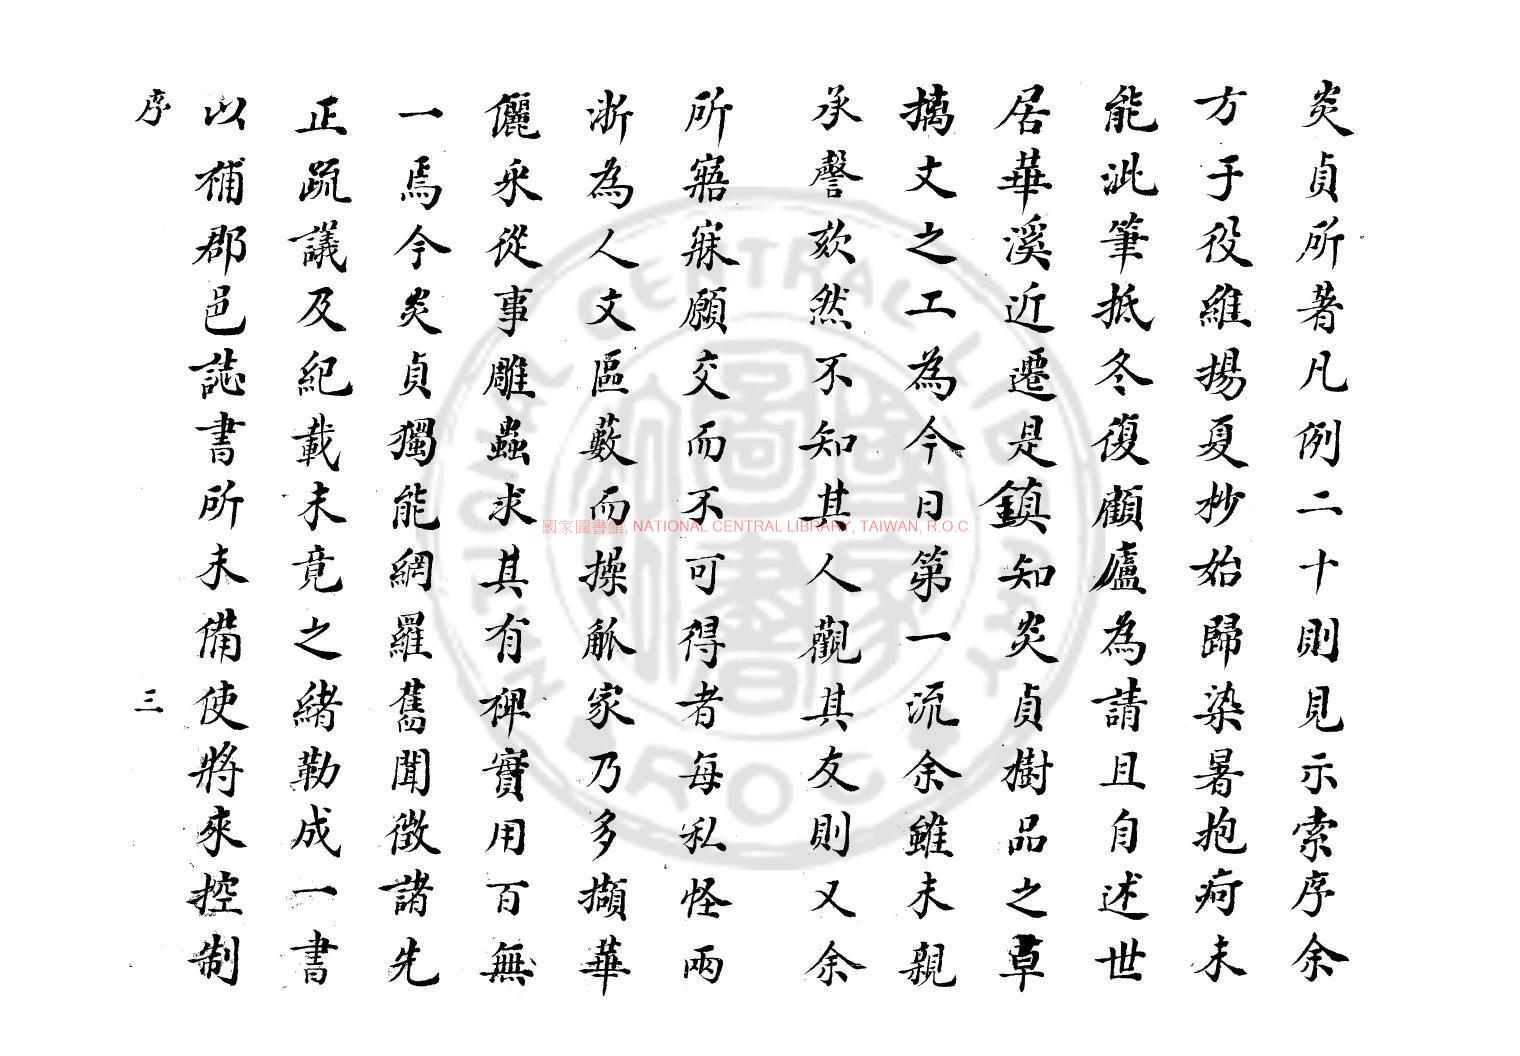 炎貞所著凡例二十則見示索序余
方于役維揚夏杪始歸染暑抱疴未
能泚筆抵冬復顧廬為請且自述世
居華溪近遷是鎮知炎貞樹品之卓
摛文之工為今日第一流余雖未親
承謦欬然不知其人觀其友則又余
所寤寐願交而不可得者每私怪兩
浙為人文區藪而操觚家乃多擷華
儷采從事雕蟲求其有裨實用百無
一焉今炎貞獨能網羅舊聞徵諸先
正疏議及紀載未竟之緒勒成一書
以補郡邑誌書所未備使將來控制
序 三
國家圖書館, NATIONAL CENTRAL LIBRARY, TAIWAN, R.O.C.
NATIONAL CENTRAL LIBRARY
R.O.C.
國家圖書館